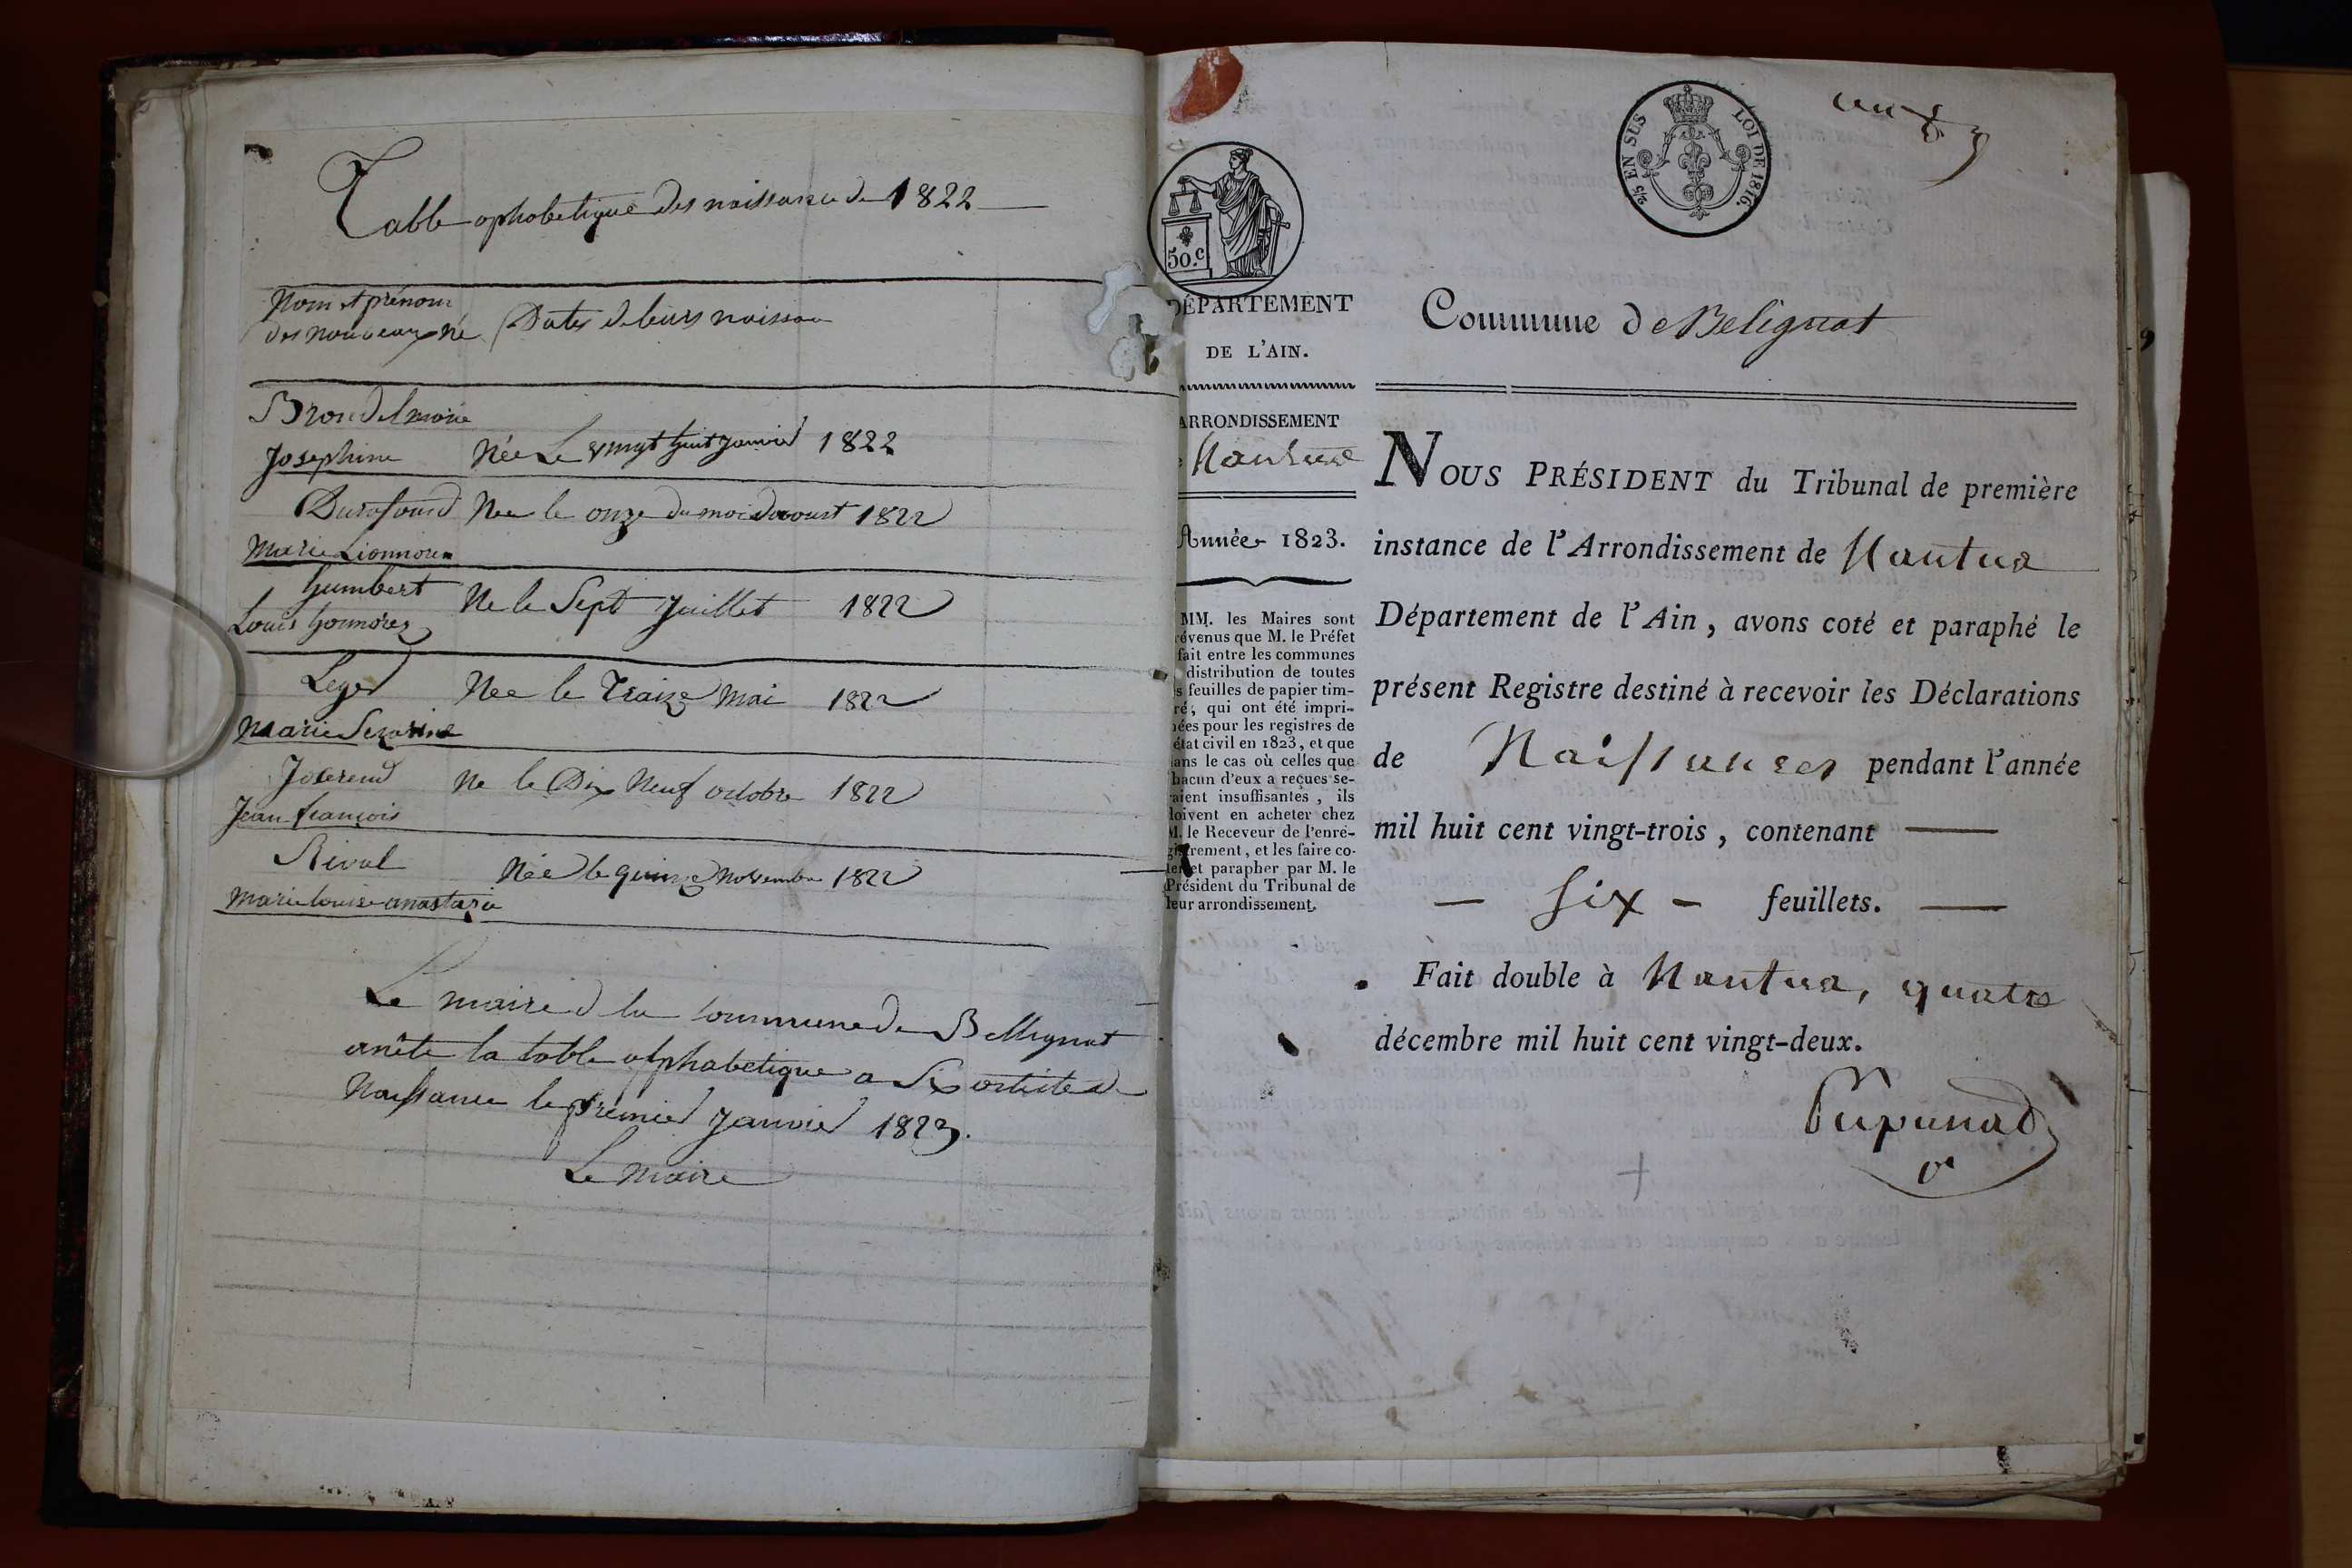 Table aphabetique des naissance de 1822
Nom et prénom
des nouveaux né
Dates de leurs naissance
Josephine Née Le vingt huit Janvier 1822
Née le onze du mois daoust 1822
Marie
humbert
Né le Sept Juillet 1822
Louis
Leger Née le Traize Mai 1822
Marie
Né le Dix Neuf octobre 1822
Jean françois
Rival
Née le quinze novembre 1822
Marie louise anastasie
Le maire d la commune de Bellignat
arrête la table alphabetique a Six article de
Naissance le premier Janvier 1823.
Le Maire
50.c
2/5 EN SUS LOI DE 1816.
DÉPARTEMENT
DE L'AIN.
ARRONDISSEMENT
Nantua
Année 1823.
MM. les Maires sont
révenus que M. le Préfet
fait entre les communes
distribution de toutes
s feuilles de papier tim-
ré, qui ont été impri-
ées pour les registres de
état civil en 1823, et que
ans le cas où celles que
hacun d'eux a reçues se-
aient insuffisantes, ils
doivent en acheter chez
M. le Receveur de l'enre-
gistrement, et les faire co-
ter et parapher par M. le
Président du Tribunal de
leur arrondissement.
Commune de Belignat
NOUS PRÉSIDENT du Tribunal de première
instance de l'Arrondissement de Nantua
Département de l'Ain, avons coté et paraphé le
présent Registre destiné à recevoir les Déclarations
de Naissances pendant l'année
mil huit cent vingt-trois, contenant —
— Six — feuillets. —
Fait double à Nantua, quatre
décembre mil huit cent vingt-deux.